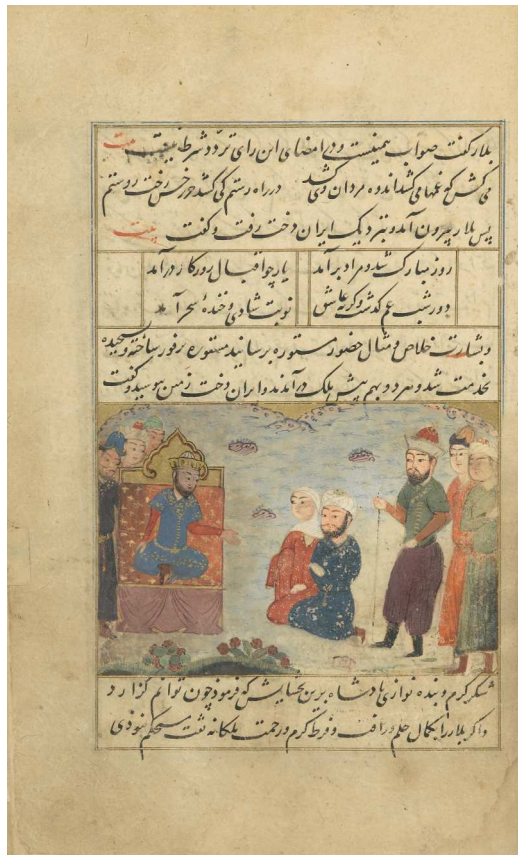 بلار گفت صواب همینست و در امضای این رای تردد شرط نیست بیت
می کش که غمها می کشد اندوه مردان وی کشد در راه رستم کی کشد جز رخش رخت روستم
پس بلار بیرون آمد و بنزدیک ایران دخت رفت و گفت بیت
روز مبارک شد و مراد بر آمد یار چو اقبال روزگار در آمد
دور شب غم گذشت و گریه عاشق نوبت شادی و خنده سحر آمد
و بشارت خلاص و مثال حضور مستوره برسانید مستوره بر فور ساخته و بسیجیده
بخدمت شد و هر دو بهم پیش ملک در آمدند و ایران دخت زمین ببوسید و گفت
شکر کرم و بنده نوازی پادشاه برین بخشایش که فرمود چون توانم گزارد
و اگر بلار را بکمال حلم و رافت و فرط کرم و رحمت ملکانه ثقت مستحکم نبودی